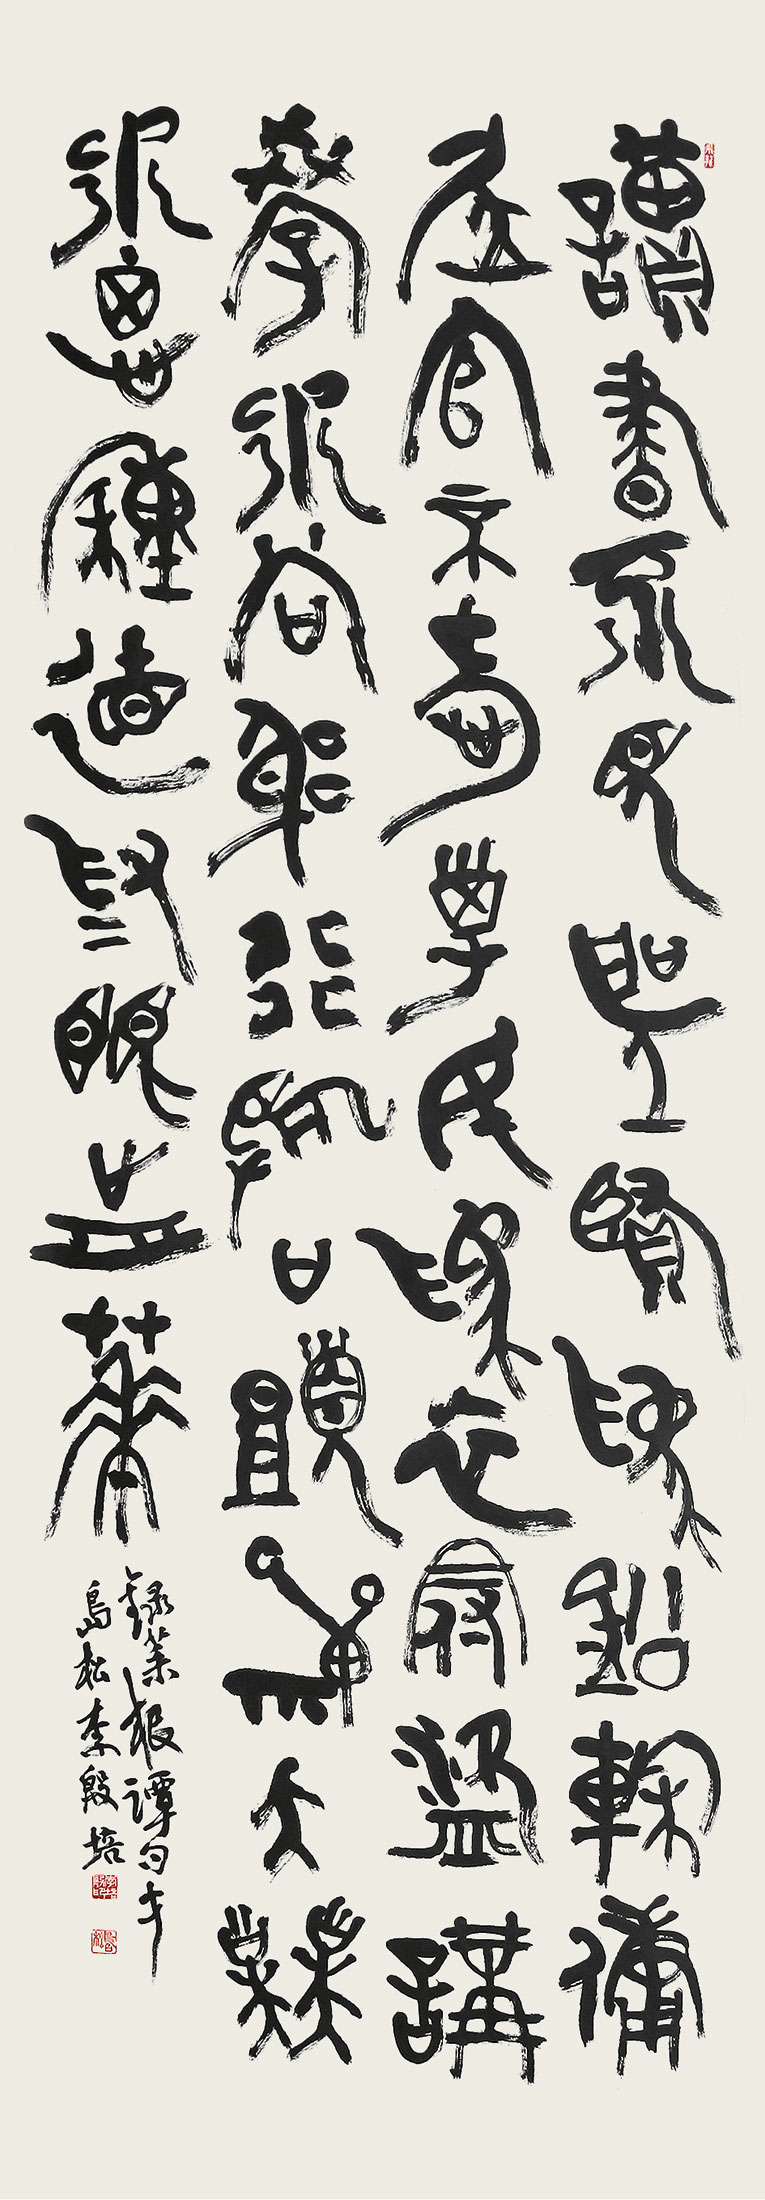 讀書不見聖賢為鉛槧傭
居官不愛子民為衣冠盜講
學不尚躬行為口頭禪立業
不思種德為眼前花
錄菜根譚句
島松李殷培